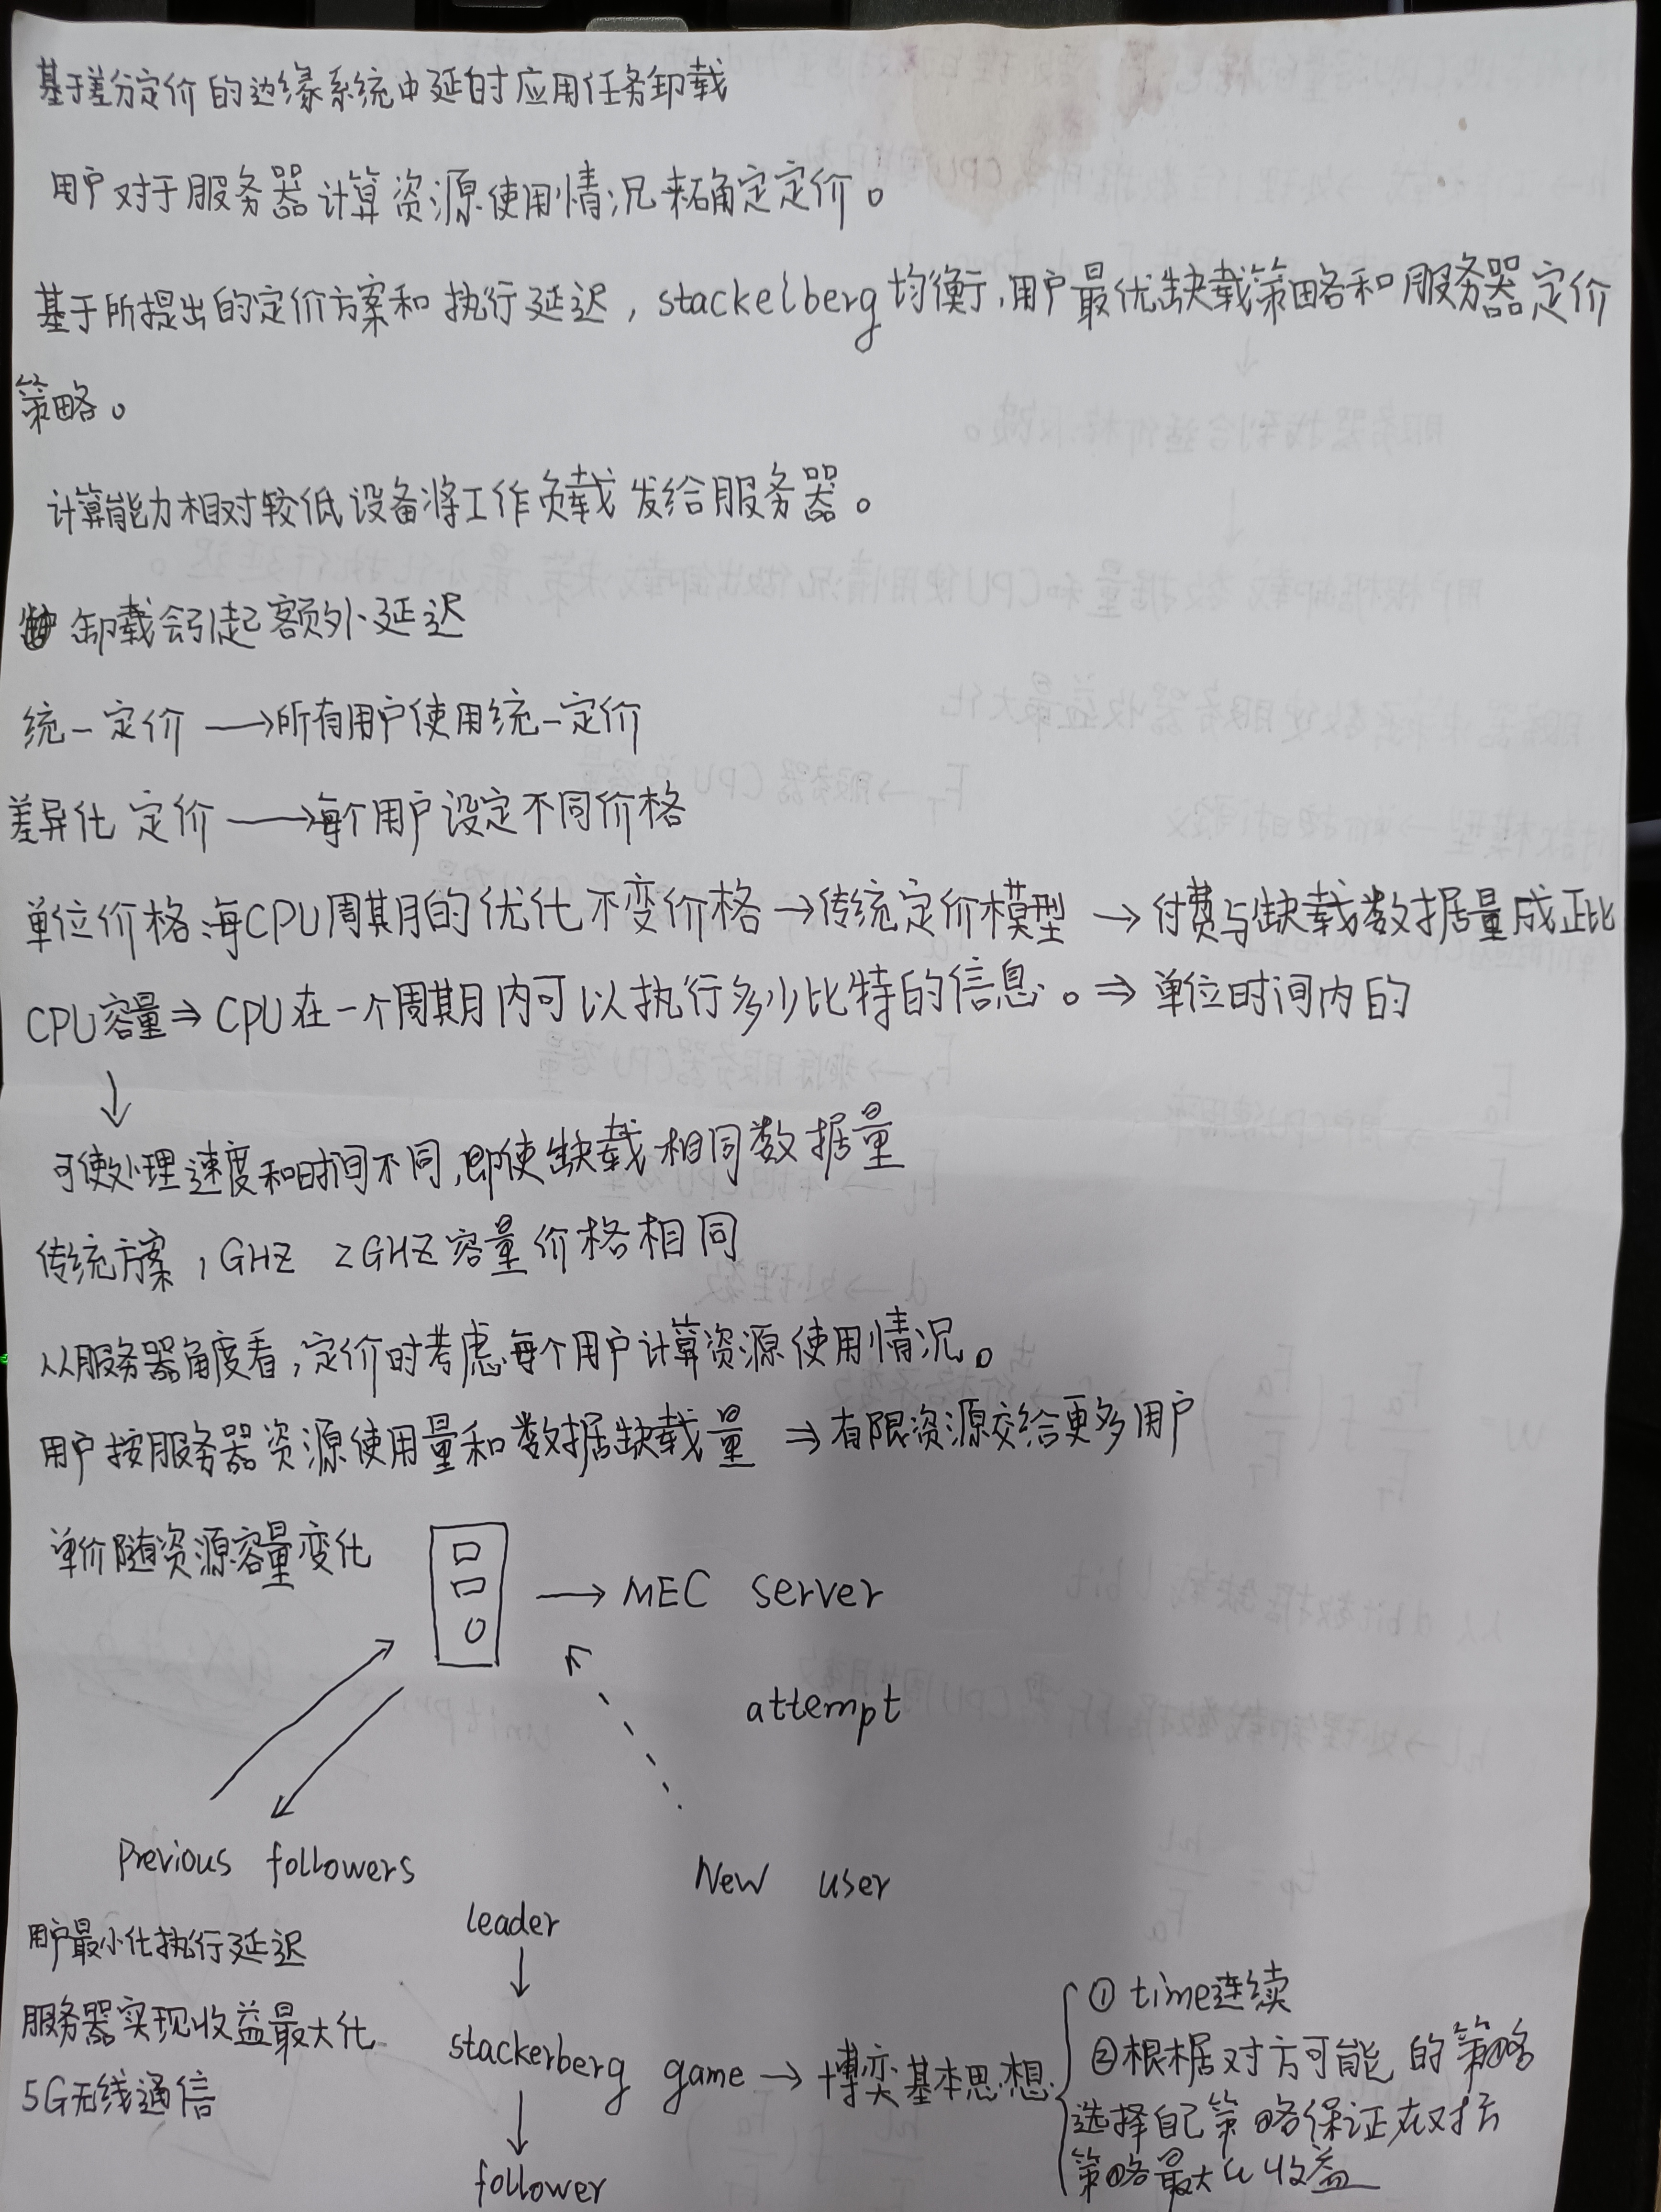 基于差分定价的边缘系统中延时应用任务卸载
用户对于服务器计算资源使用情况来确定定价。
基于所提出的定价方案和执行延迟，stackelberg均衡，用户最优缺载策略和服务器定价
策略。
计算能力相对较低设备将工作负载发给服务器。
卸载会引起额外延迟
统一定价 →所有用户使用统一定价
差异化定价 →每个用户设定不同价格
单位价格：每CPU周期的优化不变价格→传统定价模型 →付费与缺载数据量成正比
CPU容量⇒CPU在一个周期内可以执行多少比特的信息。⇒单位时间内的
↓
可使处理速度和时间不同，即使缺载相同数据量
传统方案，1GHZ 2GHZ容量价格相同
从服务器角度看，定价时考虑每个用户计算资源使用情况。
用户按服务器资源使用量和数据缺载量 ⇒有限资源交给更多用户
单价随资源容量变化
→ MEC server
attempt
Previous followers
New user
用户最小化执行延迟
服务器实现收益最大化
5G无线通信
leader
↓
stackerberg game → 博弈基本思想
↓
follower
① time连续
②根据对方可能的策略
选择自己策略保证在对方
策略最大化收益